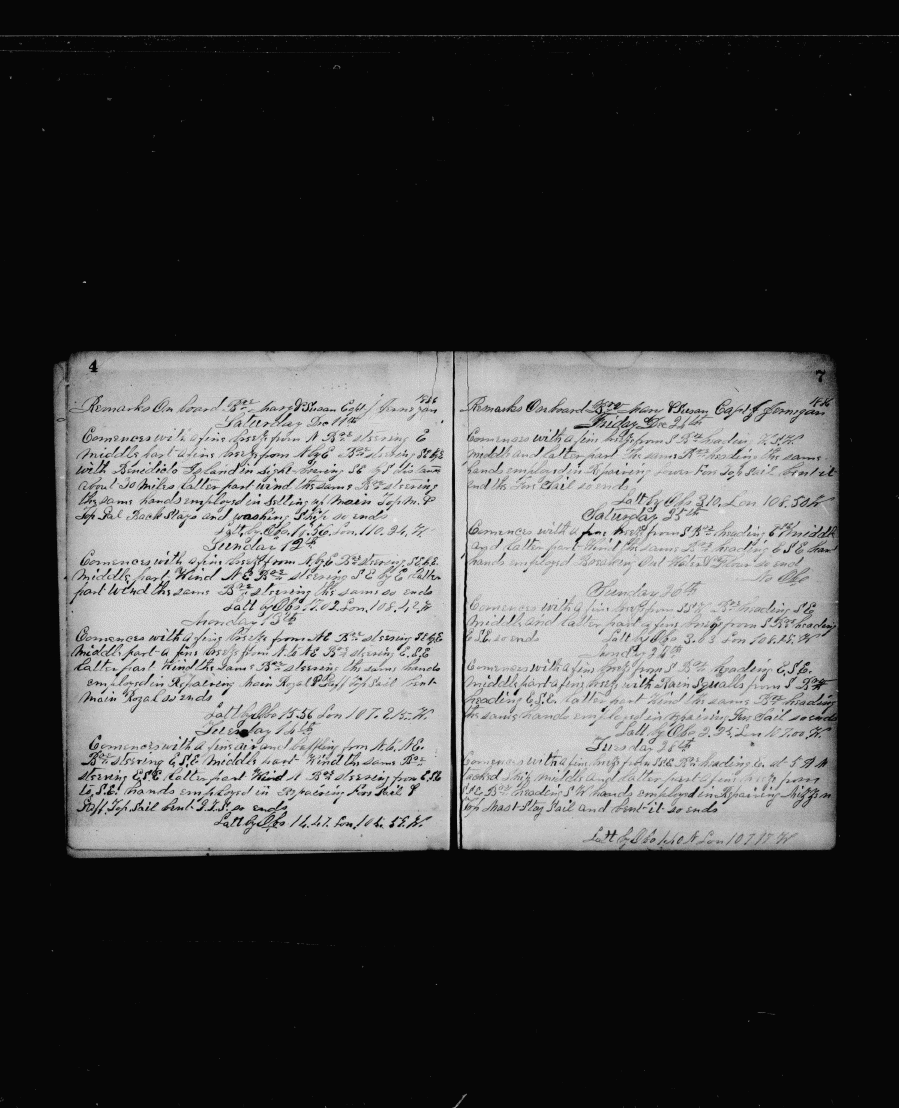 4
Remarks On board Bqe Mary & Susan Capt J Jernigan
Saturday Dec 11th
Comences with a fine breeze from N Bqe steering E
middle part a fine breeze from N by E Bqe steering SE by E
with Binidicto Island in Sight bearing SE by S dis
about 30 Miles latter part wind the same Bqe steering
the same hands employed in Setting up Main Topm &
Top Gal Back Stays and washing Ship so ends
Latt by Obs 19.56 Lon 110.24 W
Sunday 12th
Comences with a fine breeze from N by E Bqe steering SE by E
middle part Wind N E Bqe steering S E by E latter
part wind the same Bqe steering the same so ends
Latt by Obs 17.02 Lon 108.42 W
Monday 13th
Comences with a fine breeze from NE Bqe steering SE by E
middle part a fine breeze from N.E. NE Bqe steering E.S.E
latter part Wind the same Bqe steering the same hands
employed in Repairing Main Royal & Gaff Top Sail bent
Main Royal so ends
Latt by Obs 15.56 Lon 107.215 W
Tuesday 14th
Comences with a fine air and baffling from N.E. NE.
Bqe steering E.S.E middle part Wind the same Bqe
steering E.S.E. latter part Wind N Bqe steering from E.S.E
to S.E. hands employed in repairing Fore Sail &
Gaff Top Sail bent G.T.S. so ends
Latt by Obs 14.47 Lon 106.57 W
7
Remarks On board Bqe Mary & Susan Capt J Jernigan
Friday Dec 24th
Comences with a fine breeze from S Bqe heading W.S.W
middle and latter part the same Bqe heading the same
hands employed in Repairing lower Fore Top Sail bent it
and the Fore Sail so ends
Latt by Obs 3.10 Lon 108.50 W
Saturday 25th
Comences with a fine breeze from S Bqe heading middle
and latter part Wind the same Bqe heading E S E
hands employed Breaking Out Water & Flour so end
No Obs
Sunday 26th
Comences with a fine breeze from SSW Bqe heading SE
Middle and latter part a fine breeze from S Bqe heading
E.S.E so ends Latt by Obs 3.03 Lon 108.15 W
Comences with a fine breeze from S Bqe heading E.S.E.
middle part a fine breeze with Rain Squalls from S Bqe
heading E.S.E. latter part Wind the same Bqe heading
the same hands employed in repairing Fore Sail so ends
Latt by Obs 2.25 Lon 107.00 W
Tuesday 28th
Comences with a fine breeze from SSE Bqe heading E at 5 A M
tacked Ship middle and latter part a fine breeze from
SSE Bqe heading S W hands employed in Repairing Mizzen
Top Mast Stay Sail and bent it so ends
Latt by Obs 1.40 N Lon 107.17 W